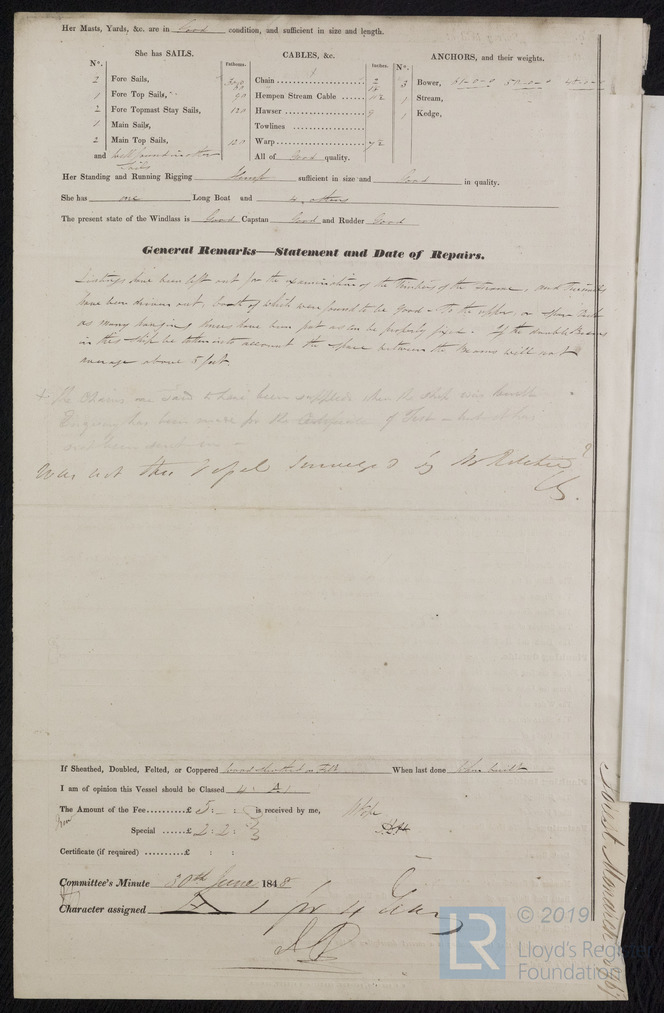 Her Masts, Yards, &c. are in Good condition, and sufficient in size and length.
She has SAILS.
CABLES, &c.
ANCHORS, and their weights.
N°.
Fathoms.
Inches.
N°.
2 Fore Sails,
Chain
3 Bower,
1 Fore Top Sails,
90
Hempen Stream Cable
1 Stream,
2 Fore Topmast Stay Sails,
120
Hawser 9
1 Kedge,
1 Main Sails,
Towlines
2 Main Top Sails,
120
Warp
and well found in other Sails
All of Good quality.
Her Standing and Running Rigging Hemp sufficient in size and Good in quality.
She has one Long Boat and 4 others
The present state of the Windlass is Good Capstan Good and Rudder Good
General Remarks—Statement and Date of Repairs.
Listings have been left out for the examination of the timbers of the Frame, and Treenails
have been driven out, both of which were found to be good - To the upper, or Spar Deck
as many hanging knees have been put as can be properly fixed. If the double Beams
in this Ship be taken into account the space between the Beams will not
average above 5 feet
+ The Chains are said to have been supplied when the Ship was launched
Enquiry has been made for the Certificate of Test - but it has
not been sent in -
Was not this Vessel surveyed by Mr Ritchie?
If Sheathed, Doubled, Felted, or Coppered Wood sheathed on Felt When last done When built
I am of opinion this Vessel should be Classed 4 A 1
The Amount of the Fee £ 5 : - : - is received by me,
Special £ 2 : 2 :
Certificate (if required) £ : :
Committee's Minute 30th June 1848
Character assigned A 1 for 4 Years
LR
© 2019
Lloyd's Register
Foundation